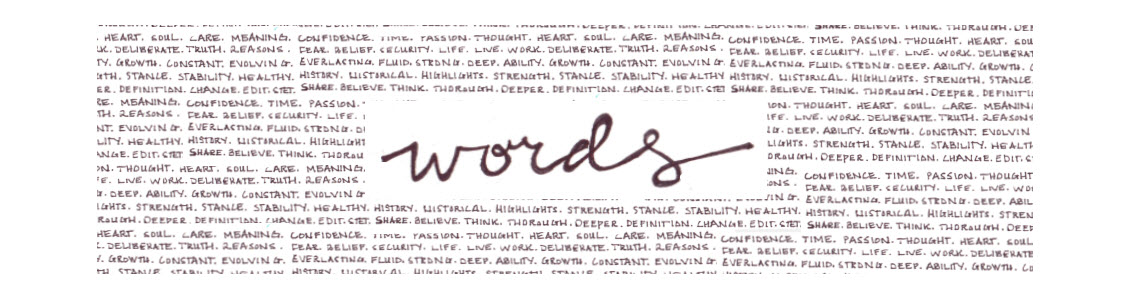 DEEPER. DEFINITION. CHANGE. EDIT. STET SHARE. BELIEVE. THINK. THOROUGH. DEEPER. DEFINITION. CHANGE. EDIT. STET SHARE. BELIEVE. THINK. THOROUGH.
HEART. SOUL. CARE. MEANING. CONFIDENCE. TIME. PASSION. THOUGHT. HEART. SOUL. CARE. MEANING. CONFIDENCE. TIME. PASSION. THOUGHT. HEART.
DELIBERATE. TRUTH. REASONS. FEAR. BELIEF. SECURITY. LIFE. LIVE. WORK. DELIBERATE. TRUTH. REASONS. FEAR. BELIEF. SECURITY. LIFE. LIVE. WORK.
GROWTH. CONSTANT. EVOLVING. EVERLASTING. FLUID. STRONG. DEEP. ABILITY. GROWTH. CONSTANT. EVOLVING. EVERLASTING. FLUID. STRONG. DEEP. ABILITY. GROWTH.
STANCE. STABILITY. HEALTHY HISTORY. HISTORICAL. HIGHLIGHTS. STRENGTH. STANCE. STABILITY. HEALTHY HISTORY. HISTORICAL. HIGHLIGHTS. STRENGTH. STANCE.
DEFINITION. CHANGE. EDIT. STET SHARE. BELIEVE. THINK. THOROUGH. DEEPER. DEFINITION. CHANGE. EDIT. STET SHARE. BELIEVE. THINK. THOROUGH. DEEPER.
MEANING. CONFIDENCE. TIME. PASSION. THOUGHT. HEART. SOUL. CARE.
REASONS. FEAR. BELIEF. SECURITY. LIFE. LIFE. LIVE. WORK. DELIBERATE. TRUTH.
EVOLVING. EVERLASTING. FLUID. STRONG. DEEP. ABILITY. GROWTH. CONSTANT.
HEALTHY. HISTORY. HISTORICAL. STRENGTH. STANCE. STABILITY.
CHANGE. EDIT. STET SHARE. BELIEVE. THINK. DEEPER. DEFINITION. CHANGE. EDIT.
words
THOUGHT. HEART. SOUL. CARE. MEANING. CONFIDENCE. TIME. PASSION. THOUGHT
LIVE. WORK. DELIBERATE. TRUTH. REASONS. FEAR. BELIEF. SECURITY. LIFE. LIVE.
DEEP. ABILITY. GROWTH. CONSTANT. EVOLVING EVERLASTING. FLUID. STRONG. DEEP.
STRENGTH. STANCE. STABILITY. HEALTHY. HISTORY. HISTORICAL. HIGHLIGHTS. STRENGTH. STANCE. STABILITY. HEALTHY. HISTORY. HISTORICAL. HIGHLIGHTS.
DEEPER. DEFINITION. CHANGE. EDIT. STET SHARE. BELIEVE. THINK. THOROUGH. DEEPER. DEFINITION. CHANGE. EDIT. STET SHARE. BELIEVE. THINK. THOROUGH.
HEART. SOUL. CARE. MEANING. CONFIDENCE. TIME. PASSION. THOUGHT. HEART. SOUL. CARE. MEANING. CONFIDENCE. TIME. PASSION. THOUGHT. HEART. SOUL
DELIBERATE. TRUTH. REASONS. FEAR. BELIEF. SECURITY. LIFE. LIVE. WORK. DELIBERATE. TRUTH. REASONS. FEAR. BELIEF. SECURITY. LIFE. LIVE. WORK.
GROWTH. CONSTANT. EVOLVING. EVERLASTING. FLUID. STRONG. DEEP. ABILITY. GROWTH. CONSTANT. EVOLVING. EVERLASTING. FLUID. STRONG. DEEP. ABILITY. GROWTH.
STANCE. STABILITY. HEALTHY HISTORY. HISTORICAL. HIGHLIGHTS. STRENGTH. STANCE. STABILITY. HEALTHY HISTORY. HISTORICAL. HIGHLIGHTS. STRENGTH. STANCE.